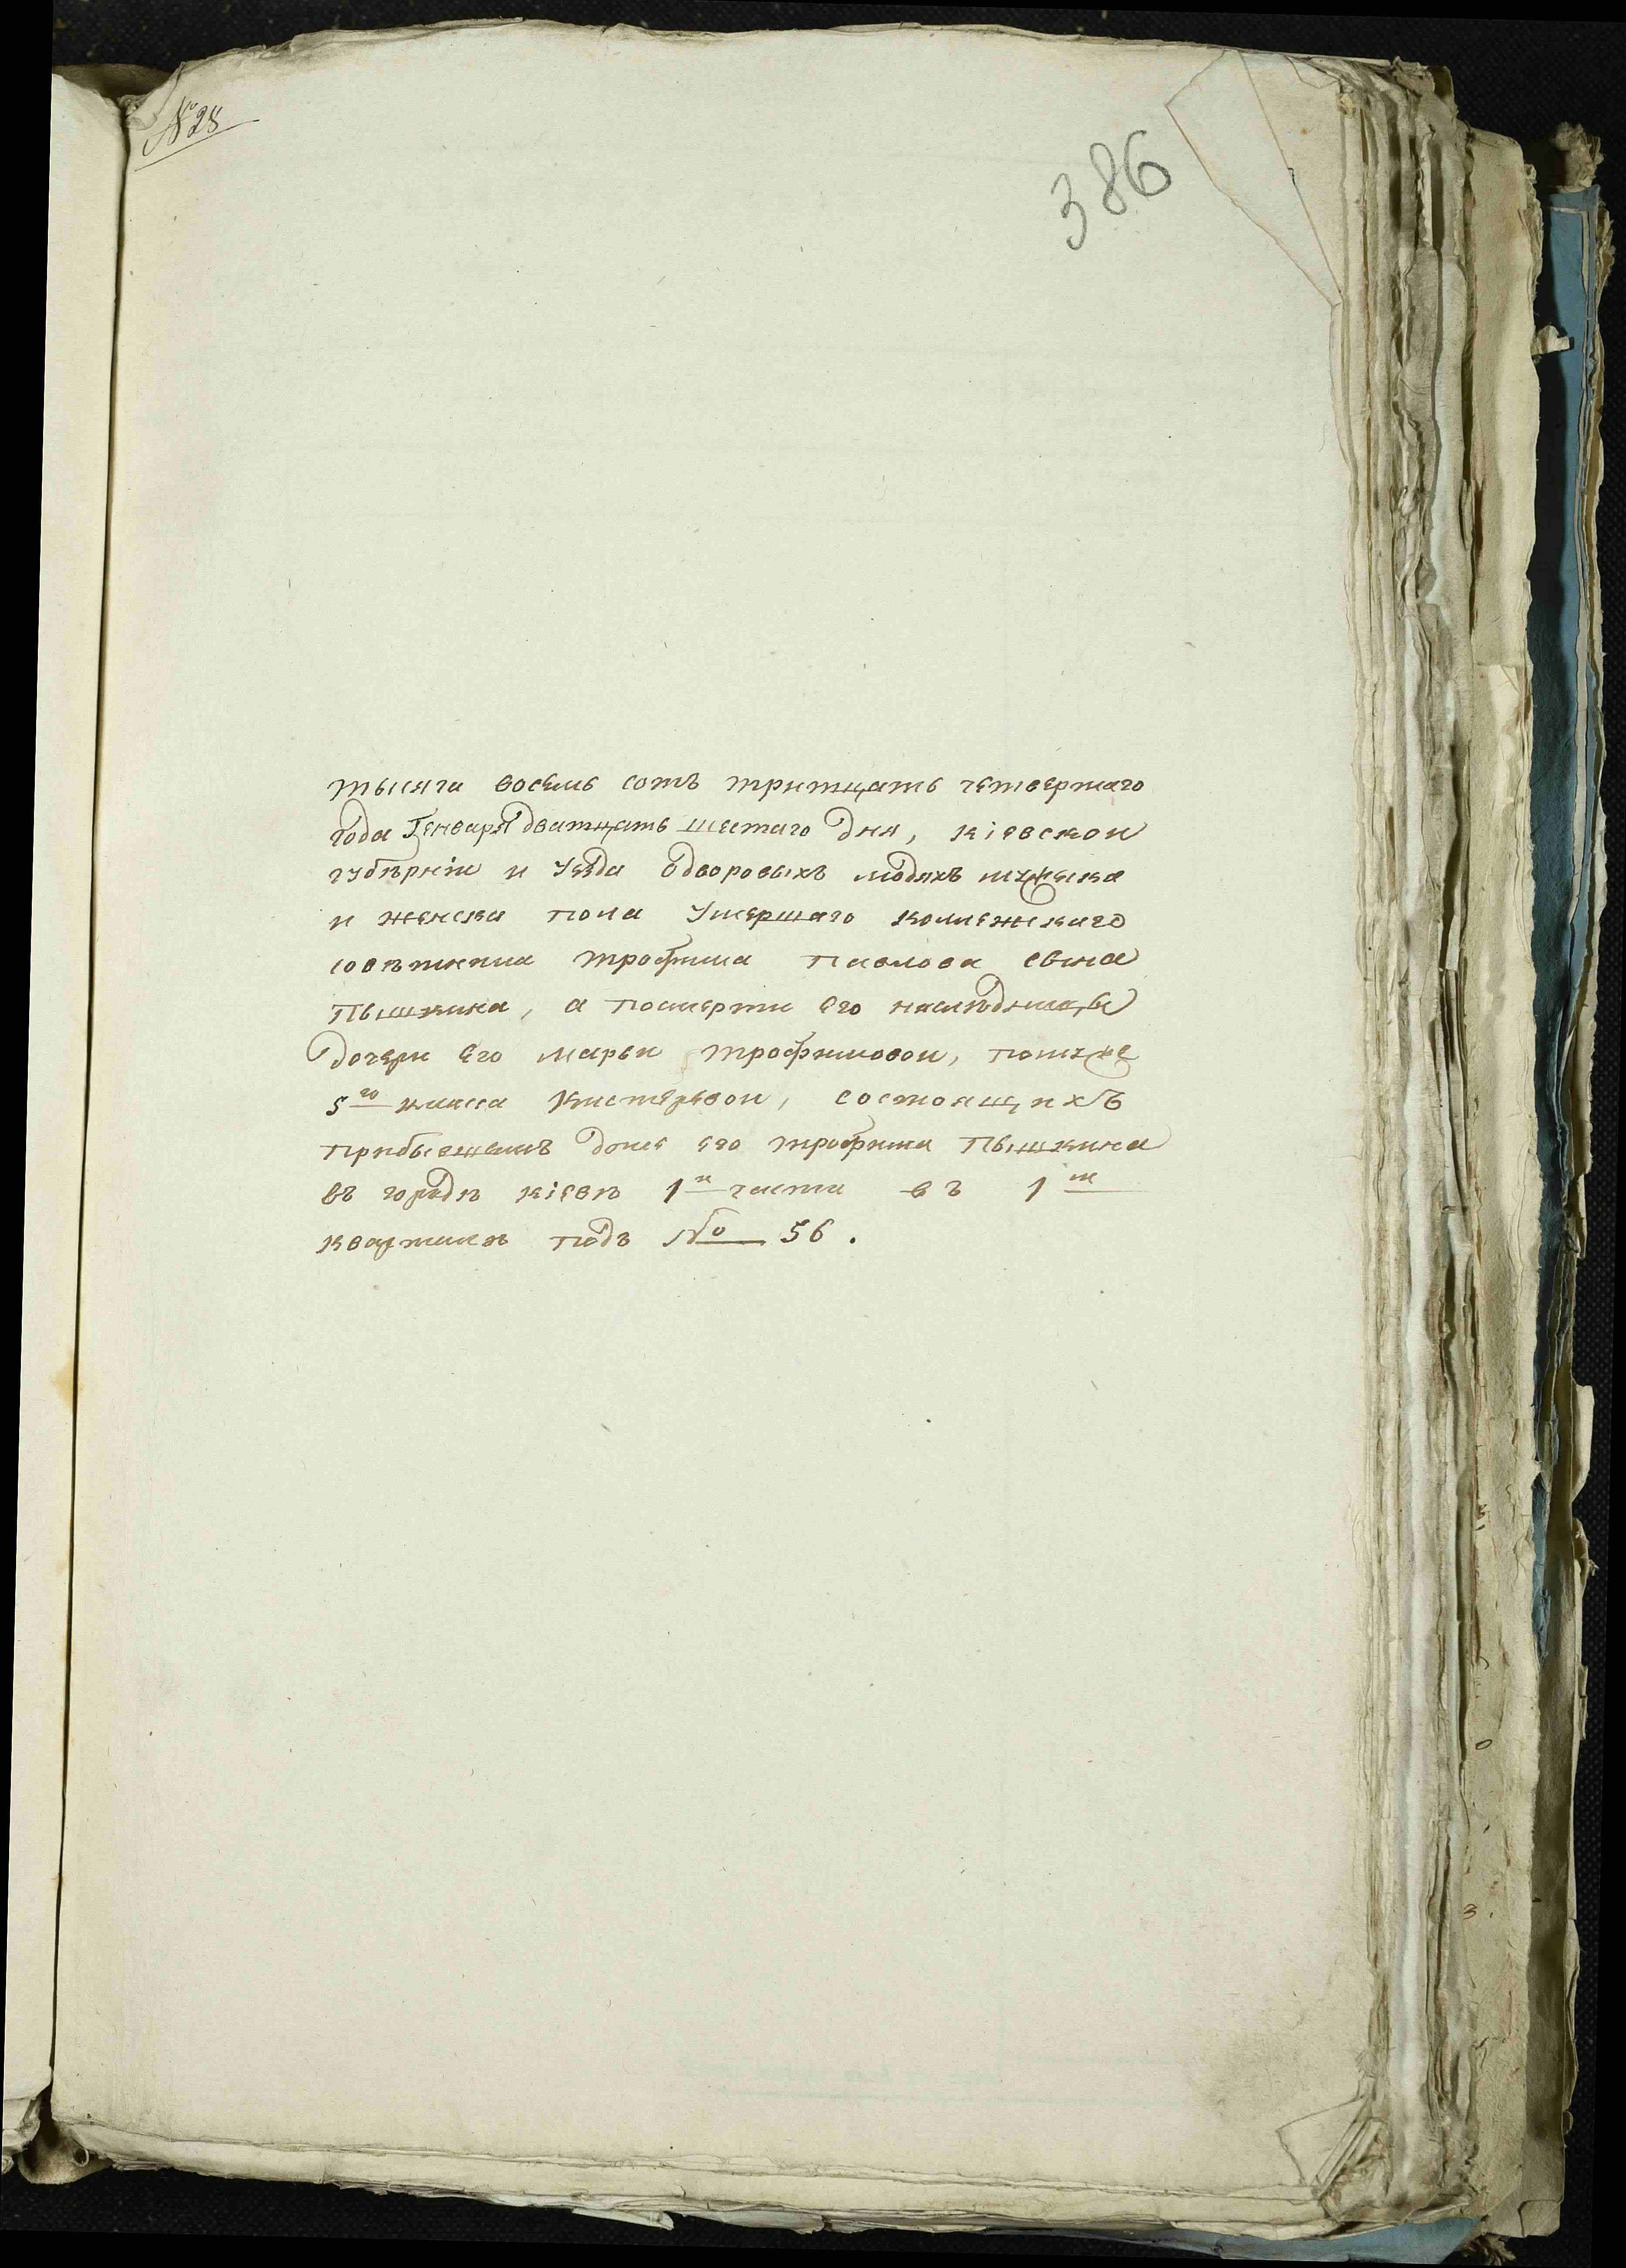 № 28
386
тысяча восемь сотъ тритцать четвертаго
года Генваря дватцать шестаго дня, кіевской
губѣрніи и уезда одворовыхъ людяхъ мужеска
и женска пола умершаго коллежскаго
совѣтника трофима павлова сына
Пышкина, а посмерти его наслѣдницы
дочери его марьи трофимовой, помуже
5го класса Кистеревой, состоящихъ
прибывшемъ доме его трофима Пышкина
въ городѣ кіевѣ 1й части въ 1м
кварталѣ подъ № 56.